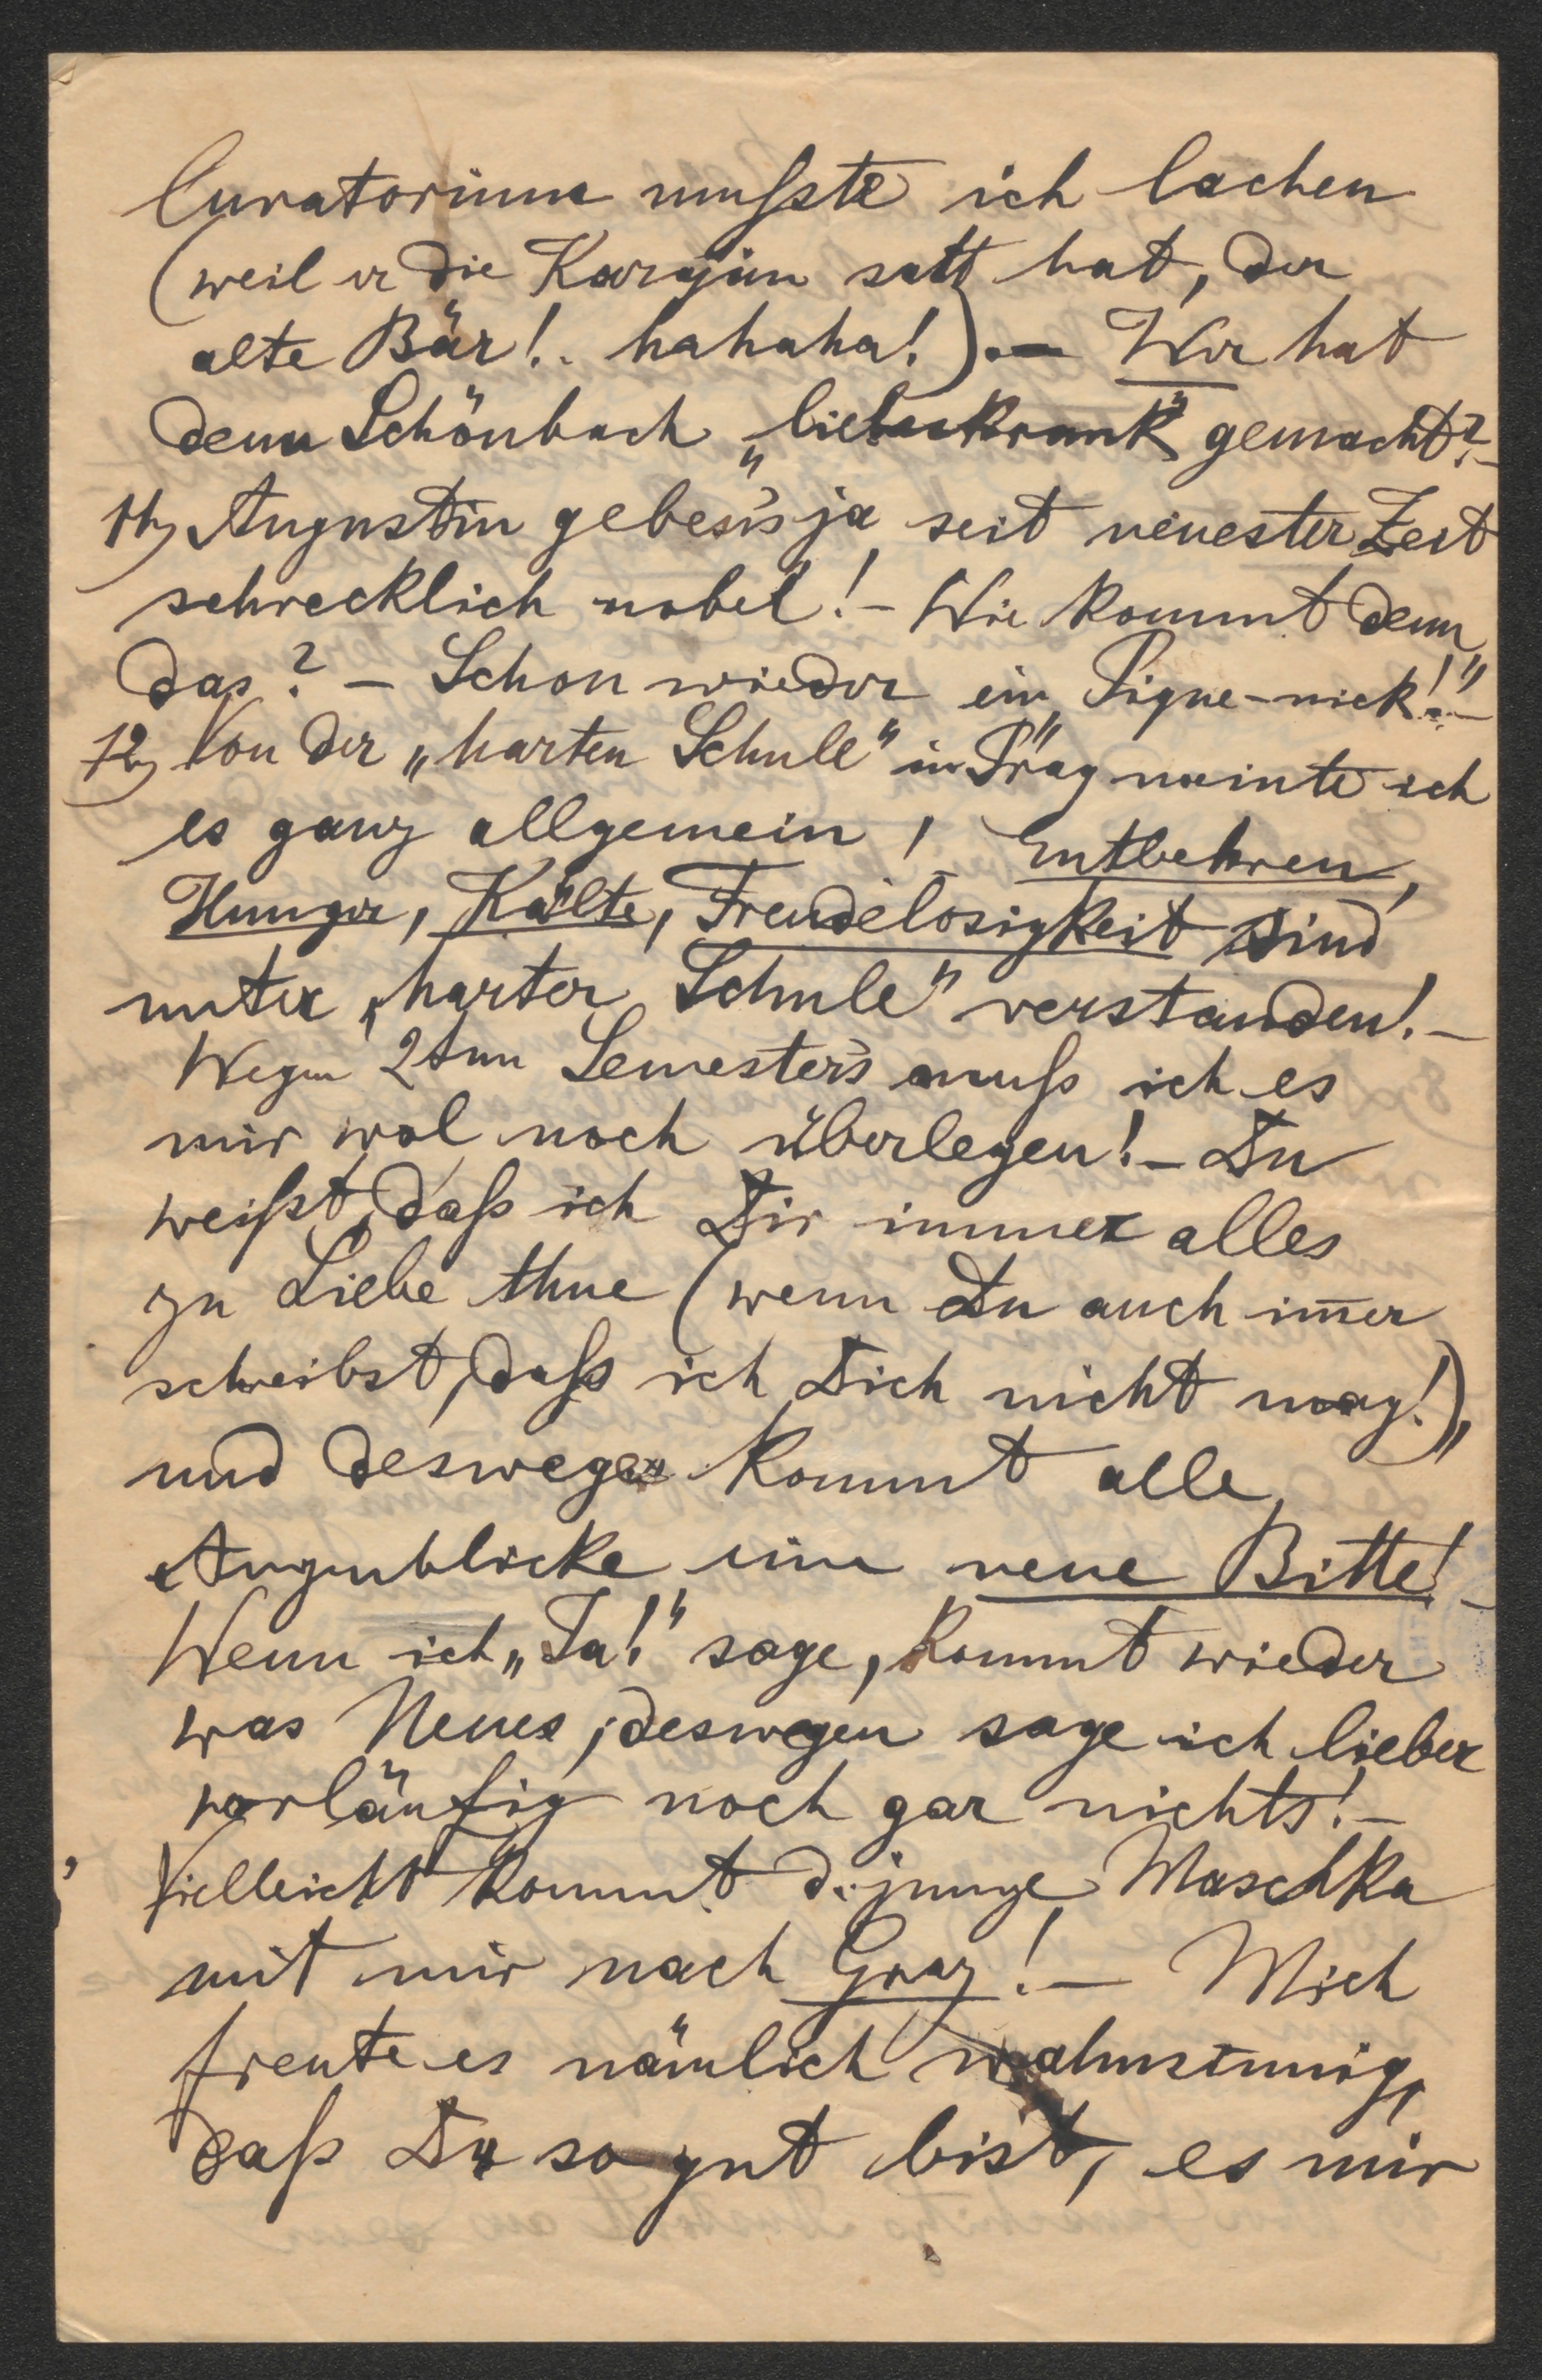 Curatorium mußste ich lachen
(weil er die Karajan satt hat, der
alte Bär!.. hahaha!).— Wer hat
denn Schönbach „liebeskrank" gemacht?–
11, Augustin geben's ja seit neuester Zeit
schrecklich nobel!– Wie kommt denn
das? – Schon wieder ein „Pique-nick!"–
12, Von der „harten Schule" in Prag meinte ich
es ganz allgemein! Entbehren,
Hunger, Kälte, Freudelosigkeit sind
unter „harter Schule" verstanden!.–
Wegen 2tem Semester's muß ich es
mir wol noch überlegen!– Du
weißt, daß ich Dir immer alles
zu Liebe thue (wenn Du auch im̅er
schreibst, daß ich Dich nicht mag!),
und deswegen kommt alle
Augenblicke eine neue Bitte!–
Wenn ich „Ja!" sage, kommt wieder
was Neues, deswegen sage ich lieber
vorläufig noch gar nichts!.–
Vielleicht kommt d. junge Maschka
mit mir nach Graz!.— Mich
freute es nämlich wahnsinnig,
daß Du so gut bist, es mir